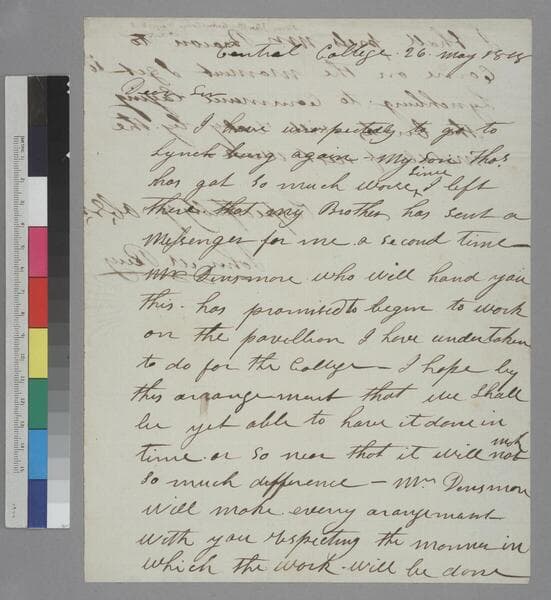 Central College 26 May 1818
Dear Sir
I have unexpectedly to go to
Lynchburg again My son Thos.
has got so much worse since I left
there that my Brother has sent a
Messenger for me a second time —
Mr Dinsmore who will hand you
this. has promised to begin to work
on the pavillion I have undertaken
to do for the College — I hope by
this arrangement that we shall
be yet able to have it done in
time or so near that it will not mak
so much difference — Mr Dinsmore
will make every arangement
with you respecting the manner in
which the work will be done